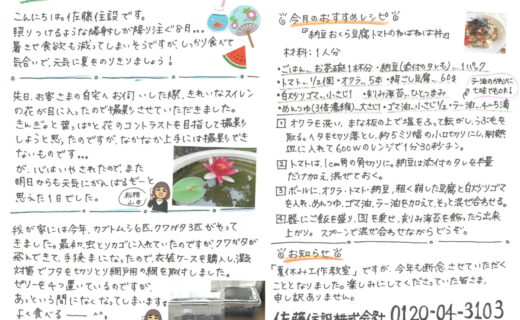 こんにちは。佐藤住設です。
照りつけるような陽射しが降り注ぐ8月...
暑さで食欲も減ってしまいそうですが、しっかり食べて
気合いで、元気に夏をのりきりましょう！
先日、お客さまの自宅へお伺いした際、きれいなスイレン
の花が目に入ったので撮影させていただきました。
きんぎょと葉っぱと花のコントラストを目指して撮影
しようと思ったのですが、なかなか上手には撮影でき
ないものです...
が、いっぱいいやされたので、また
明日からも元気にがんばるぞーと
思えた1日でした。
我が家には今年、カブトムシ6匹、クワガタ3匹がやって
きました。最初、虫とりカゴに入れていたのですがクワガタが
飛んできて、手狭になったので、衣装ケースを購入し、
対策でフタを切りとり網戸用の網を取付しました。
ゼリーを4つ置いているのですが、
あっという間になくなってしまいます。
よく食べる—— ^^。
☆今月のおすすめレシピ
『納豆おくら豆腐トマトのねばねば丼』
材料：1人分
・ごはん...お茶碗1杯分・納豆(添付のタレも)...1パック
・トマト...1/2個・オクラ...5本・絹ごし豆腐...60g
・白すりゴマ...小さじ1・刻み海苔...ひとつまみ
・めんつゆ(3倍濃縮)...大さじ1・ゴマ油...小さじ1/2・ラー油...4〜5滴
ラー油のかわりに
七味でもOK！
1 オクラを洗い、まな板の上で塩をふって転がし、うぶ毛を
取る。ヘタを切り落とし、約5ミリ幅の小口切りにし、耐熱
皿に入れて600Wのレンジで1分30秒チン。
2 トマトは、1cm角の角切りに。納豆は添付のタレを弁量
だけ加え、混ぜておく。
3 ボールに、オクラ・トマト・納豆、粗く崩した豆腐と白すりゴマ
を入れ、めんつゆ、ゴマ油、ラー油を加えて、そっと混ぜ合わせる。
4 器にご飯を盛り、3を乗せ、刻み海苔を飾ったら出来
上がり。スプーンで混ぜ合わせながらどうぞ。
☆お知らせ
「夏休み木工作教室」ですが、今年も断念させていただく
こととなりました。楽しみにしてくださっていた皆さま、
申し訳ありません。
佐藤住設株式会社 0120-04-3103